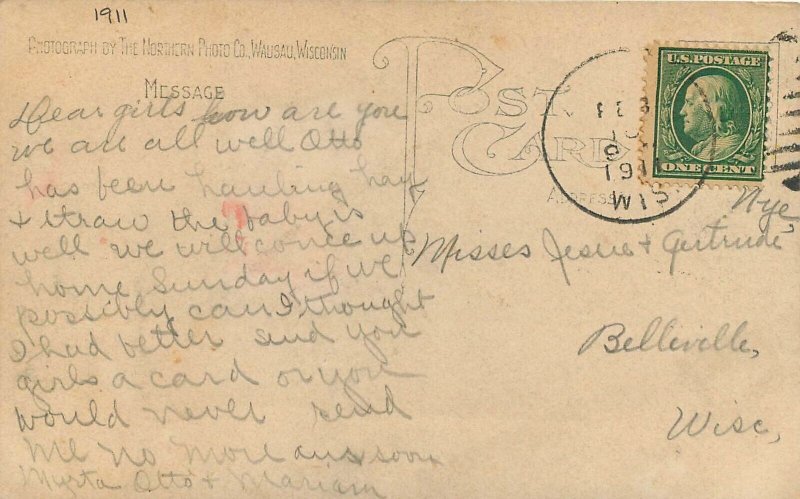 1911
PHOTOGRAPH BY THE NORTHERN PHOTO CO., WAUSAU, WISCONSIN
MESSAGE
Dear girls how are you
we are all well Otto
has been hauling hay
& straw the baby is
well we will come up
home Sunday if we
possibly can I thought
I had better send you
girls a card or you
would never send
me no more ans soon
Myrta Otto & Mariam
POST CARD
ADDRESS
FEB
191
WIS
U.S. POSTAGE
ONE CENT
Nye,
Misses Jessie & Gertrude
Belleville,
Wisc,